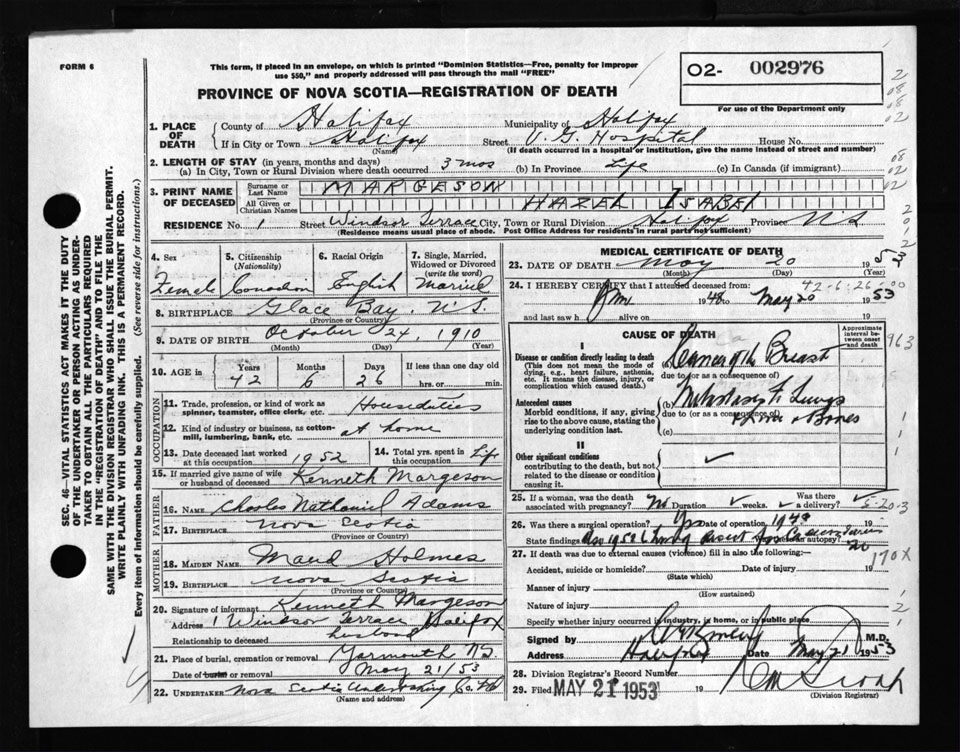 FORM 6
This form, if placed in an envelope, on which is printed "Dominion Statistics—Free, penalty for improper
use $50," and properly addressed will pass through the mail "FREE"
O2- 002976
For use of the Department only
PROVINCE OF NOVA SCOTIA—REGISTRATION OF DEATH
1. PLACE OF DEATH { County of Halifax Municipality of Halifax
If in City or Town Halifax (Name) Street V. G. Hospital House No.
(If death occurred in a hospital or institution, give the name instead of street and number)
2. LENGTH OF STAY (in years, months and days)
(a) In City, Town or Rural Division where death occurred 3 mos (b) In Province Life (c) In Canada (if immigrant)
3. PRINT NAME OF DECEASED { Surname or Last Name MARGESON
All Given or Christian Names HAZEL ISABEL
RESIDENCE No. 1 Street Windsor Terrace City, Town or Rural Division Halifax Province N S
(Residence means usual place of abode. Post Office Address for residents in rural parts not sufficient)
4. Sex Female
5. Citizenship (Nationality) Canadian
6. Racial Origin English
7. Single, Married, Widowed or Divorced (write the word) Married
8. BIRTHPLACE Glace Bay, N.S.
(Province or Country)
9. DATE OF BIRTH October 24, 1910
(Month) (Day) (Year)
10. AGE Years 42 Months 6 Days 26 If less than one day old hrs. or min.
OCCUPATION
11. Trade, profession, or kind of work as spinner, teamster, office clerk, etc. Houseduties
12. Kind of industry or business, as cotton-mill, lumbering, bank, etc. at home
13. Date deceased last worked at this occupation 1952
14. Total yrs. spent in this occupation Life
15. If married give name of wife or husband of deceased Kenneth Margeson
FATHER
16. Name Charles Nathaniel Adams
17. Birthplace Nova Scotia
(Province or Country)
MOTHER
18. MAIDEN NAME Maud Holmes
19. Birthplace Nova Scotia
(Province or Country)
20. Signature of informant Kenneth Margeson
Address 1 Windsor Terrace Halifax
Relationship to deceased husband
21. Place of burial, cremation or removal Yarmouth N.S.
Date of burial or removal May 21/53
22. UNDERTAKER Nova Scotia Undertaking Co. Ltd
(Name and address)
MEDICAL CERTIFICATE OF DEATH
23. DATE OF DEATH May 20 1953
(Month) (Day)
24. I HEREBY CERTIFY that I attended deceased from: 42-6:26-00
1948 to May 20 1953
and last saw h alive on 19
CAUSE OF DEATH
Approximate interval between onset and death
I
Disease or condition directly leading to death
(This does not mean the mode of dying, e.g., heart failure, asthenia, etc. It means the disease, injury, or complication which caused death.)
(a) Cancer of the Breast
due to (or as a consequence of)
Antecedent causes
Morbid conditions, if any, giving rise to the above cause, stating the underlying condition last.
(b) Metastases to Lungs
due to (or as a consequence of)
Liver + Bones
(c)
II
Other significant conditions
contributing to the death, but not related to the disease or condition causing it.
25. If a woman, was the death associated with pregnancy? No Duration weeks. Was there a delivery?
5-20-3
26. Was there a surgical operation? Yes Date of operation 1948
State findings autopsy?
27. If death was due to external causes (violence) fill in also the following:—
Accident, suicide or homicide? Date of injury 19
(State which)
170X
Manner of injury
(How sustained)
Nature of injury
Specify whether injury occurred in industry, in home, or in public place
Signed by M.D.
Address Halifax Date May 21 1953
28. Division Registrar's Record Number
29. Filed MAY 21 1953 19
(Division Registrar)
SEC. 46—VITAL STATISTICS ACT MAKES IT THE DUTY
OF THE UNDERTAKER OR PERSON ACTING AS UNDER-
TAKER TO OBTAIN ALL THE PARTICULARS REQUIRED
IN THE "REGISTRATION OF DEATH" AND TO FILE THE
SAME WITH THE DIVISION REGISTRAR WHO SHALL ISSUE THE BURIAL PERMIT.
WRITE PLAINLY WITH UNFADING INK. THIS IS A PERMANENT RECORD.
Every item of information should be carefully supplied. (See reverse side for instructions.)